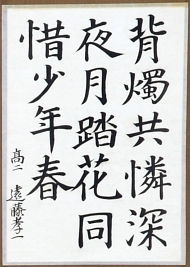 背燭共憐深
夜月踏花同
惜少年春
高二 遠藤孝二